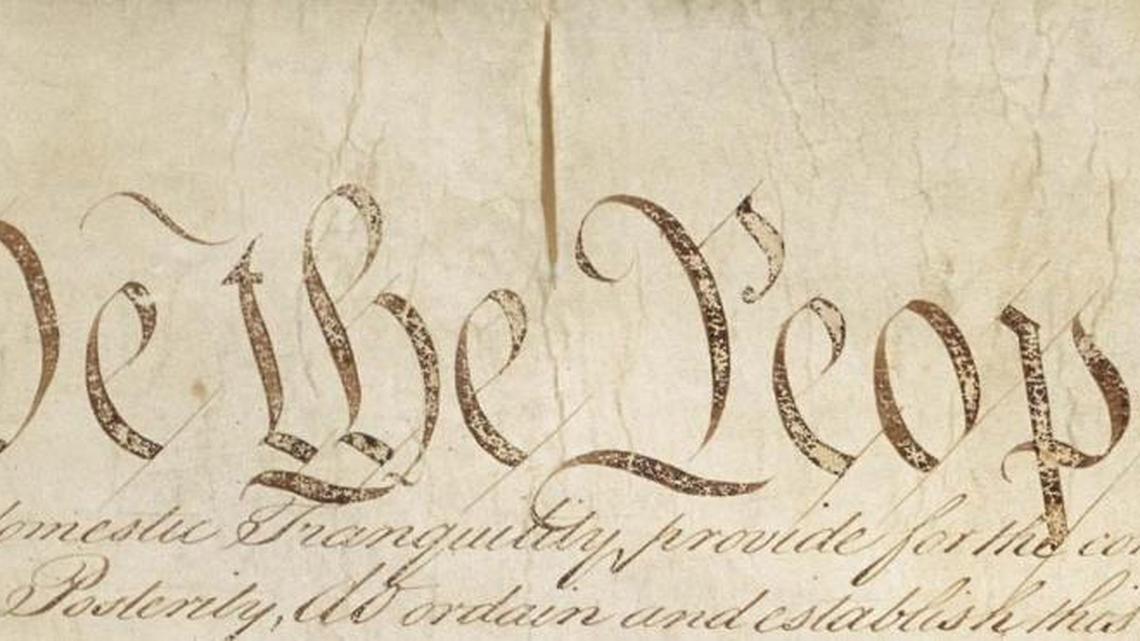 e the Peop
domestic Tranquility, provide for the co
Posterity, do ordain and establish this